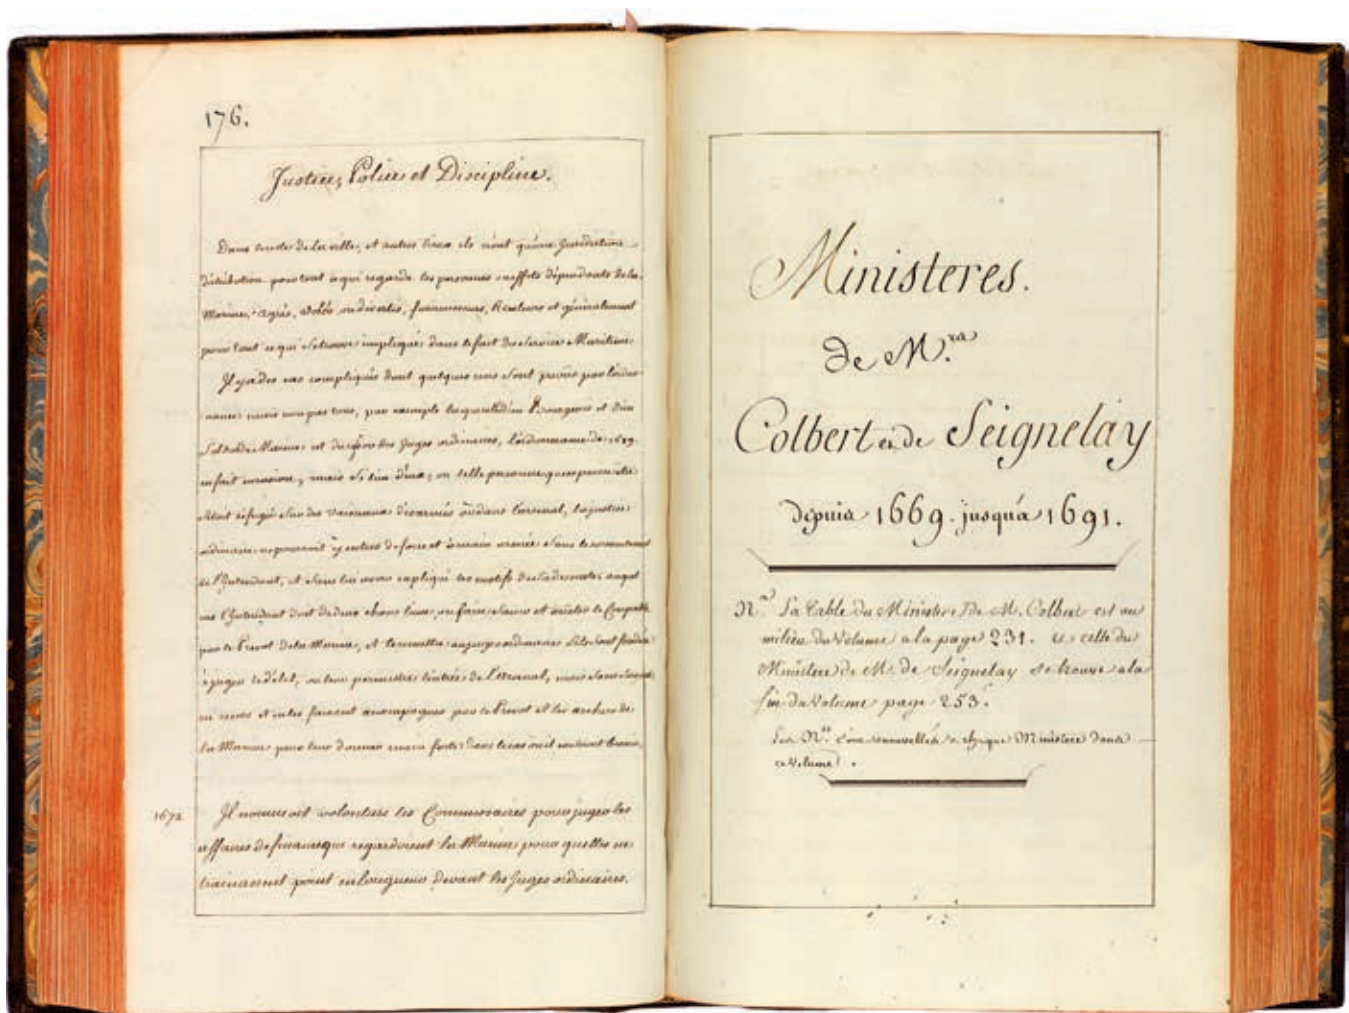 176.
Justice, Police et Discipline.
Dans le reste de la ville, et autres lieux ils n'ont qu'une Jurisdiction
d'attribution pour tout ce qui regarde les personnes ou effets dépendants de la
Marine, Agrès, volés ou divertis, fournisseurs, Recéleurs et généralement
pour tout ce qui se trouve impliqué dans le fait du Service Maritime
Il y a des cas compliqués dont quelques uns sont prévûs par l'ordon-
nance mais non pas tous, par exemple la querelle d'un Bourgeois et d'un
Soldat de Marine est du des Juges ordinaires, l'ordonnance de 1689.
en fait mention, mais si l'un d'eux, ou telle personne que ce puisse être
s'étoit réfugié sur des vaisseaux désarmés ou dans l'arsenal, la justice
ordinaire ne pourroit y entrer de force et à main armée sans le consentement
de l'Intendant, et sans lui avoir expliqué les motifs de sa descente, auquel
cas l'Intendant doit de deux choses l'une, ou faire saisir et arrêter le Coupable
par le Prevot de la Marine, et le remettre aux juges ordinaires s'ils sont fondés
à juger le délit, ou leur permettre l'entrée de l'Arsenal, mais sans
en les faisant accompagner par le Prevot et les archers de
la Marine pour leur donner main forte dans le cas où il en seroit besoin.
1672 Il nommoit volontiers les Commissaires pour juger les
affaires de finance qui regardoient la Marine pour qu'elles ne
trainassent point en longueur devant les Juges ordinaires.
Ministeres.
de M.rs
Colbert et de Seignelay
depuis 1669. jusqu'à 1691.
N.a La Table du Ministere de M. Colbert est au
milieu du Volume a la page 231. et celle du
Ministere de M. de Seignelay se trouve a la
fin du Volume page 253.
Les N.os sont renouvellés a chaque Ministere dans
ce Volume.